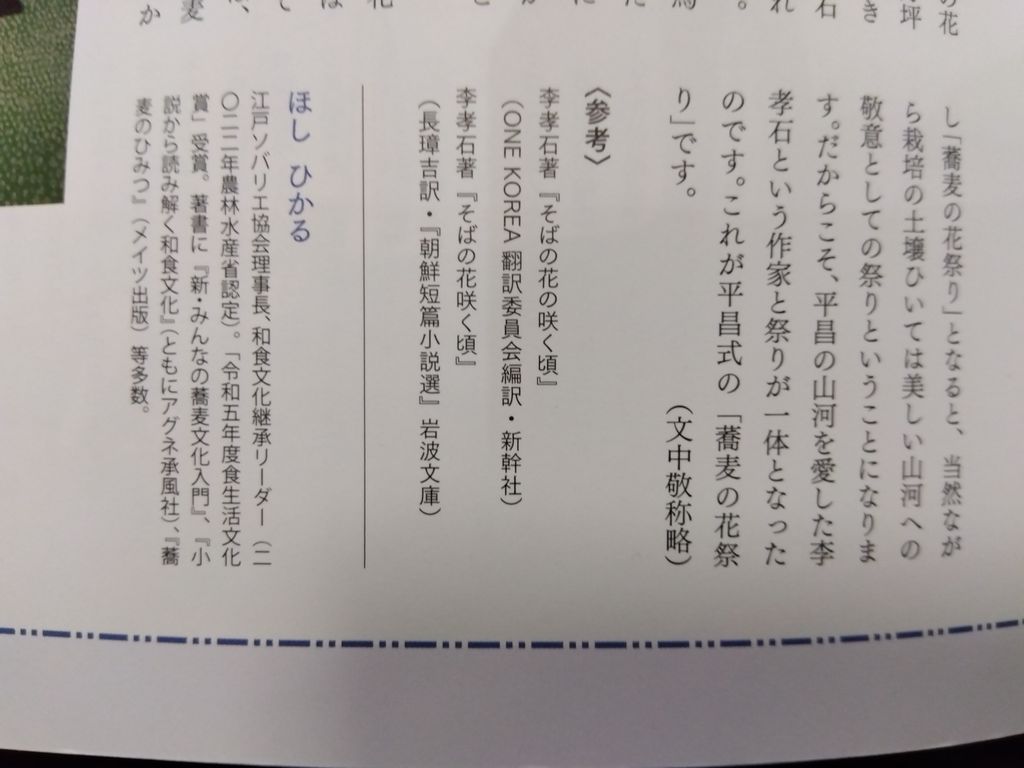 し「蕎麦の花祭り」となると、当然なが
ら栽培の土壌ひいては美しい山河への
敬意としての祭りということになりま
す。だからこそ、平昌の山河を愛した李
孝石という作家と祭りが一体となった
のです。これが平昌式の「蕎麦の花祭
り」です。
（文中敬称略）
〈参考〉
李孝石著『そばの花の咲く頃』
（ONE KOREA 翻訳委員会編訳・新幹社）
李孝石著『そばの花咲く頃』
（長璋吉訳・『朝鮮短篇小説選』岩波文庫）
ほし ひかる
江戸ソバリエ協会理事長、和食文化継承リーダー（二
〇二二年農林水産省認定）。「令和五年度食生活文化
賞」受賞。著書に『新・みんなの蕎麦文化入門』、『小
説から読み解く和食文化』（ともにアグネ承風社）、『蕎
麦のひみつ』（メイツ出版）等多数。